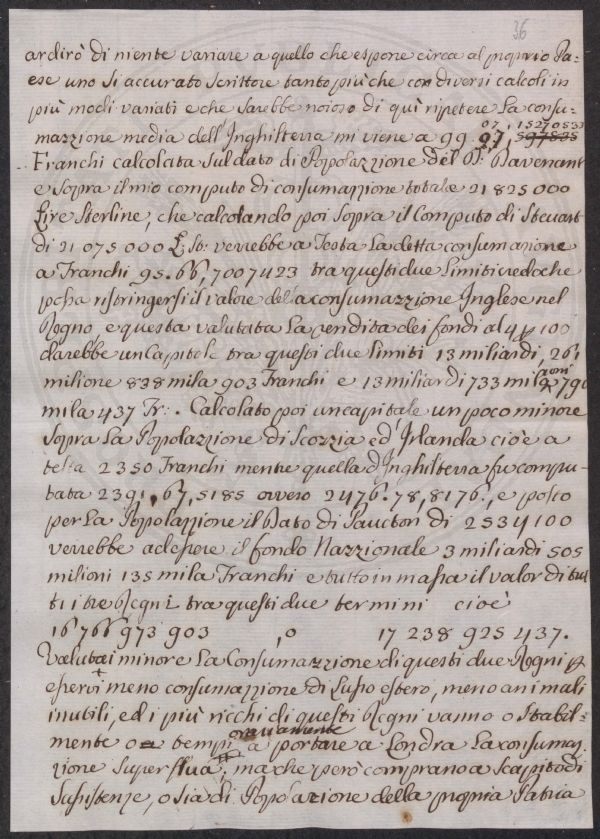 36
ardirò di niente variare a quello che espone circa al proprio Pa=
ese uno si accurato Scrittore tanto più che con diversi calcoli in
più modi variati e che sarebbe noioso di quì ripetere La consu=
mazzione media dell'Inghilterra mi viene a 99. 07, 1527053
Franchi calcolata sul dato di Popolazzione del Dr: Davenant
e sopra il mio computo di consumazzione totale 21 825 000
Lire Sterline, che calcolando poi sopra il Computo di Steuart
di 21 075 000 L. St: verrebbe a Testa La detta consumazione
a Franchi 95. 66, 7007423 tra questi due Limiti credo che
possa ristringersi il valore della consumazzione Inglese nel
Regno, e questa valutata La vendita dei fondi al 4 p 100
darebbe un Capitole tra questi due limiti 13 miliardi, 261
milione 838 mila 903 Franchi e 13 miliardi 733 milioni 790
mila 437 Fr:. Calcolato poi un capitale un poco minore
sopra La Popolazzione di Scozzia ed Irlanda cioè a
testa 2350 Franchi mentre quella d'Inghilterra fu compu=
tata 2391, 67, 5185 ovvero 2476. 78, 8176., e posto
per La Popolazzione il Dato di Paucton di 2534100
verrebbe ad essere il fondo Nazzionale 3 miliardi 505
milioni 135 mila Franchi e tutto in massa il valor di tut
ti i tre Regni tra questi due termini cioè
16 766 973 903 , o 17 238 925 437.
Valutai minore La Consumazzione di questi due Regni p
esservi meno consumazzione di Lusso estero, meno animali
inutili, ed i più ricchi di questi Regni vanno o stabil=
mente o a tempi a portare a Londra La consumaz
zione superflua, ma che però comprano a scapito di
Sussistenze, o sia di Popolazione della propria Patria